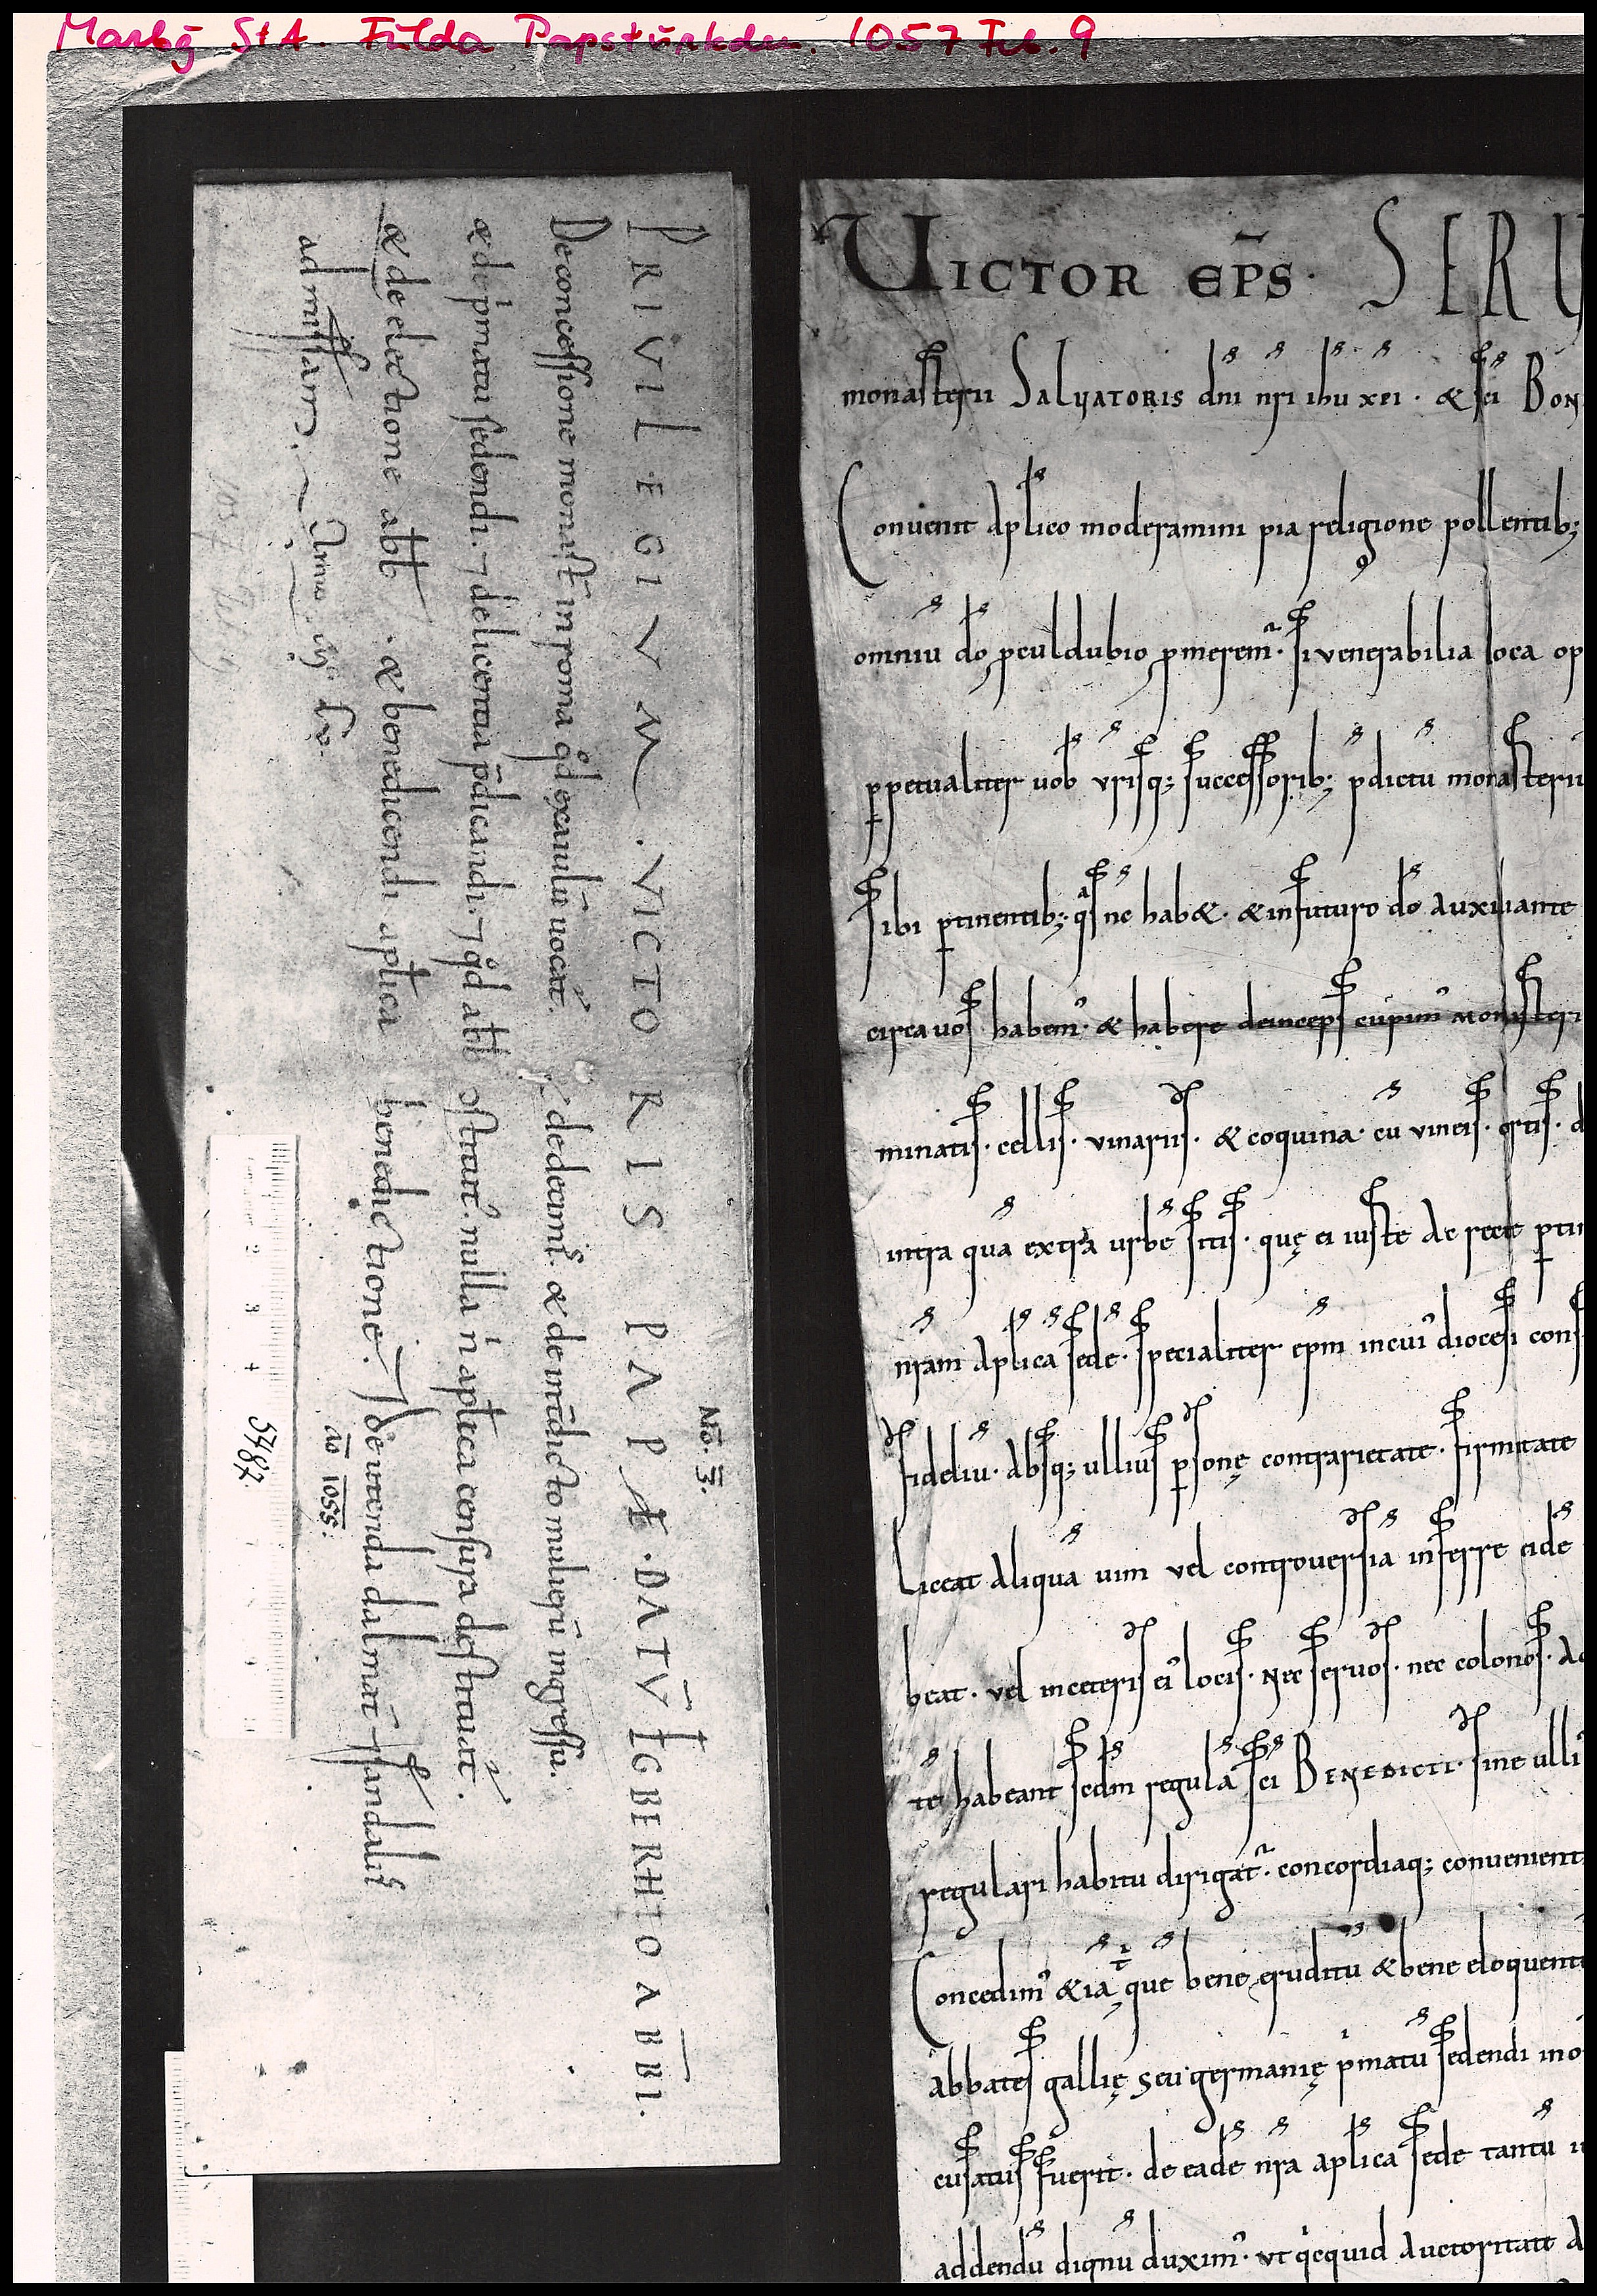 Marbg StA. Fulda Papsturkden. 1057 Feb. 9
PRIVILEGIVM . VICTORIS PAPAE . DATV̄ EGBERHTO ABBI.
De concessione monast̄ in roma qd̊ exaiulū uocat̄. & de decimis. & de int̄dicto mulierū ingressu.
& de pͥmatu sedendi. ⁊ de licentia p̄dicandi. ⁊ qd̊ abb̄ ɔstitut̄. nulla nͥ apl̄ica censura destituat̄.
& de electione abb̄. & benedicendi apl̄ica benedictione. ⁊ de utenda dalmat̄ sandaliis
ad missam.
Anno
No. 3.
ao 1055.
5487.
1057 Feb 9
2 3 4
VICTOR EP̄S. SERV
monasterii SALVATORIS dn̄i nr̄i ih̄u xp̄i . & sc̄i BON
Conuenit apl̄ico moderamini pia religione pollentib;
omniū dō ꝓculdubio ꝓmerem̄. si venerabilia loca op
ꝑpetualiter uob̄ vr̄isq; successorib; p̄dictū monasteriū
sibi ꝑtinentib; q nc̄ hab&. & in futuro dō auxiliante
circa uos habem᷒. & habere deinceps cupim᷒ monasteri
minatis. cellis. vinariis. & coquina. cū vineis. ortis. d
intra quā extra urbē sitis. quę ei iuste ac recte ꝑtin
nr̄am apl̄icā sedē. specialiter ep̄m in cui᷒ diocesi cons
fideliū. absq; ullius ꝑsonę contrarietate. firmitate
Liceat aliquā uim vel controuersiā inferre eidē
beat. vel in ceteris ei᷒ locis. nec seruos. nec colonos. Ac
tē habeant sedm regulā sc̄i BENEDICTI. sine ulli᷒
regulari habitu dirigat̄. concordiaq; convenient
Concedim᷒ &iā que bene eruditū & bene eloquent
Abbates gallię seu germanię pͥmatū sedendi in o
cusatus fuerit. de eadē nr̄a apl̄ica sede tantū
addendū dignū duxim᷒. vt qͥcquid auctoritate A